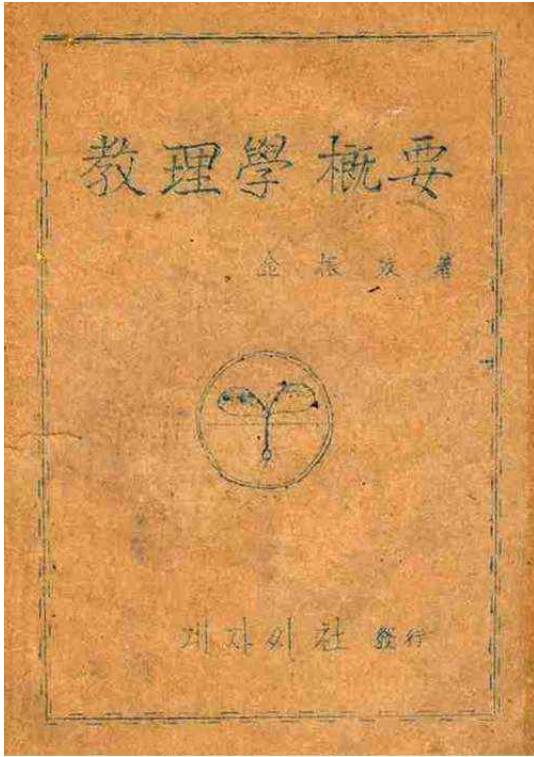 教理學概要
金 振 著
게자씨社 發行